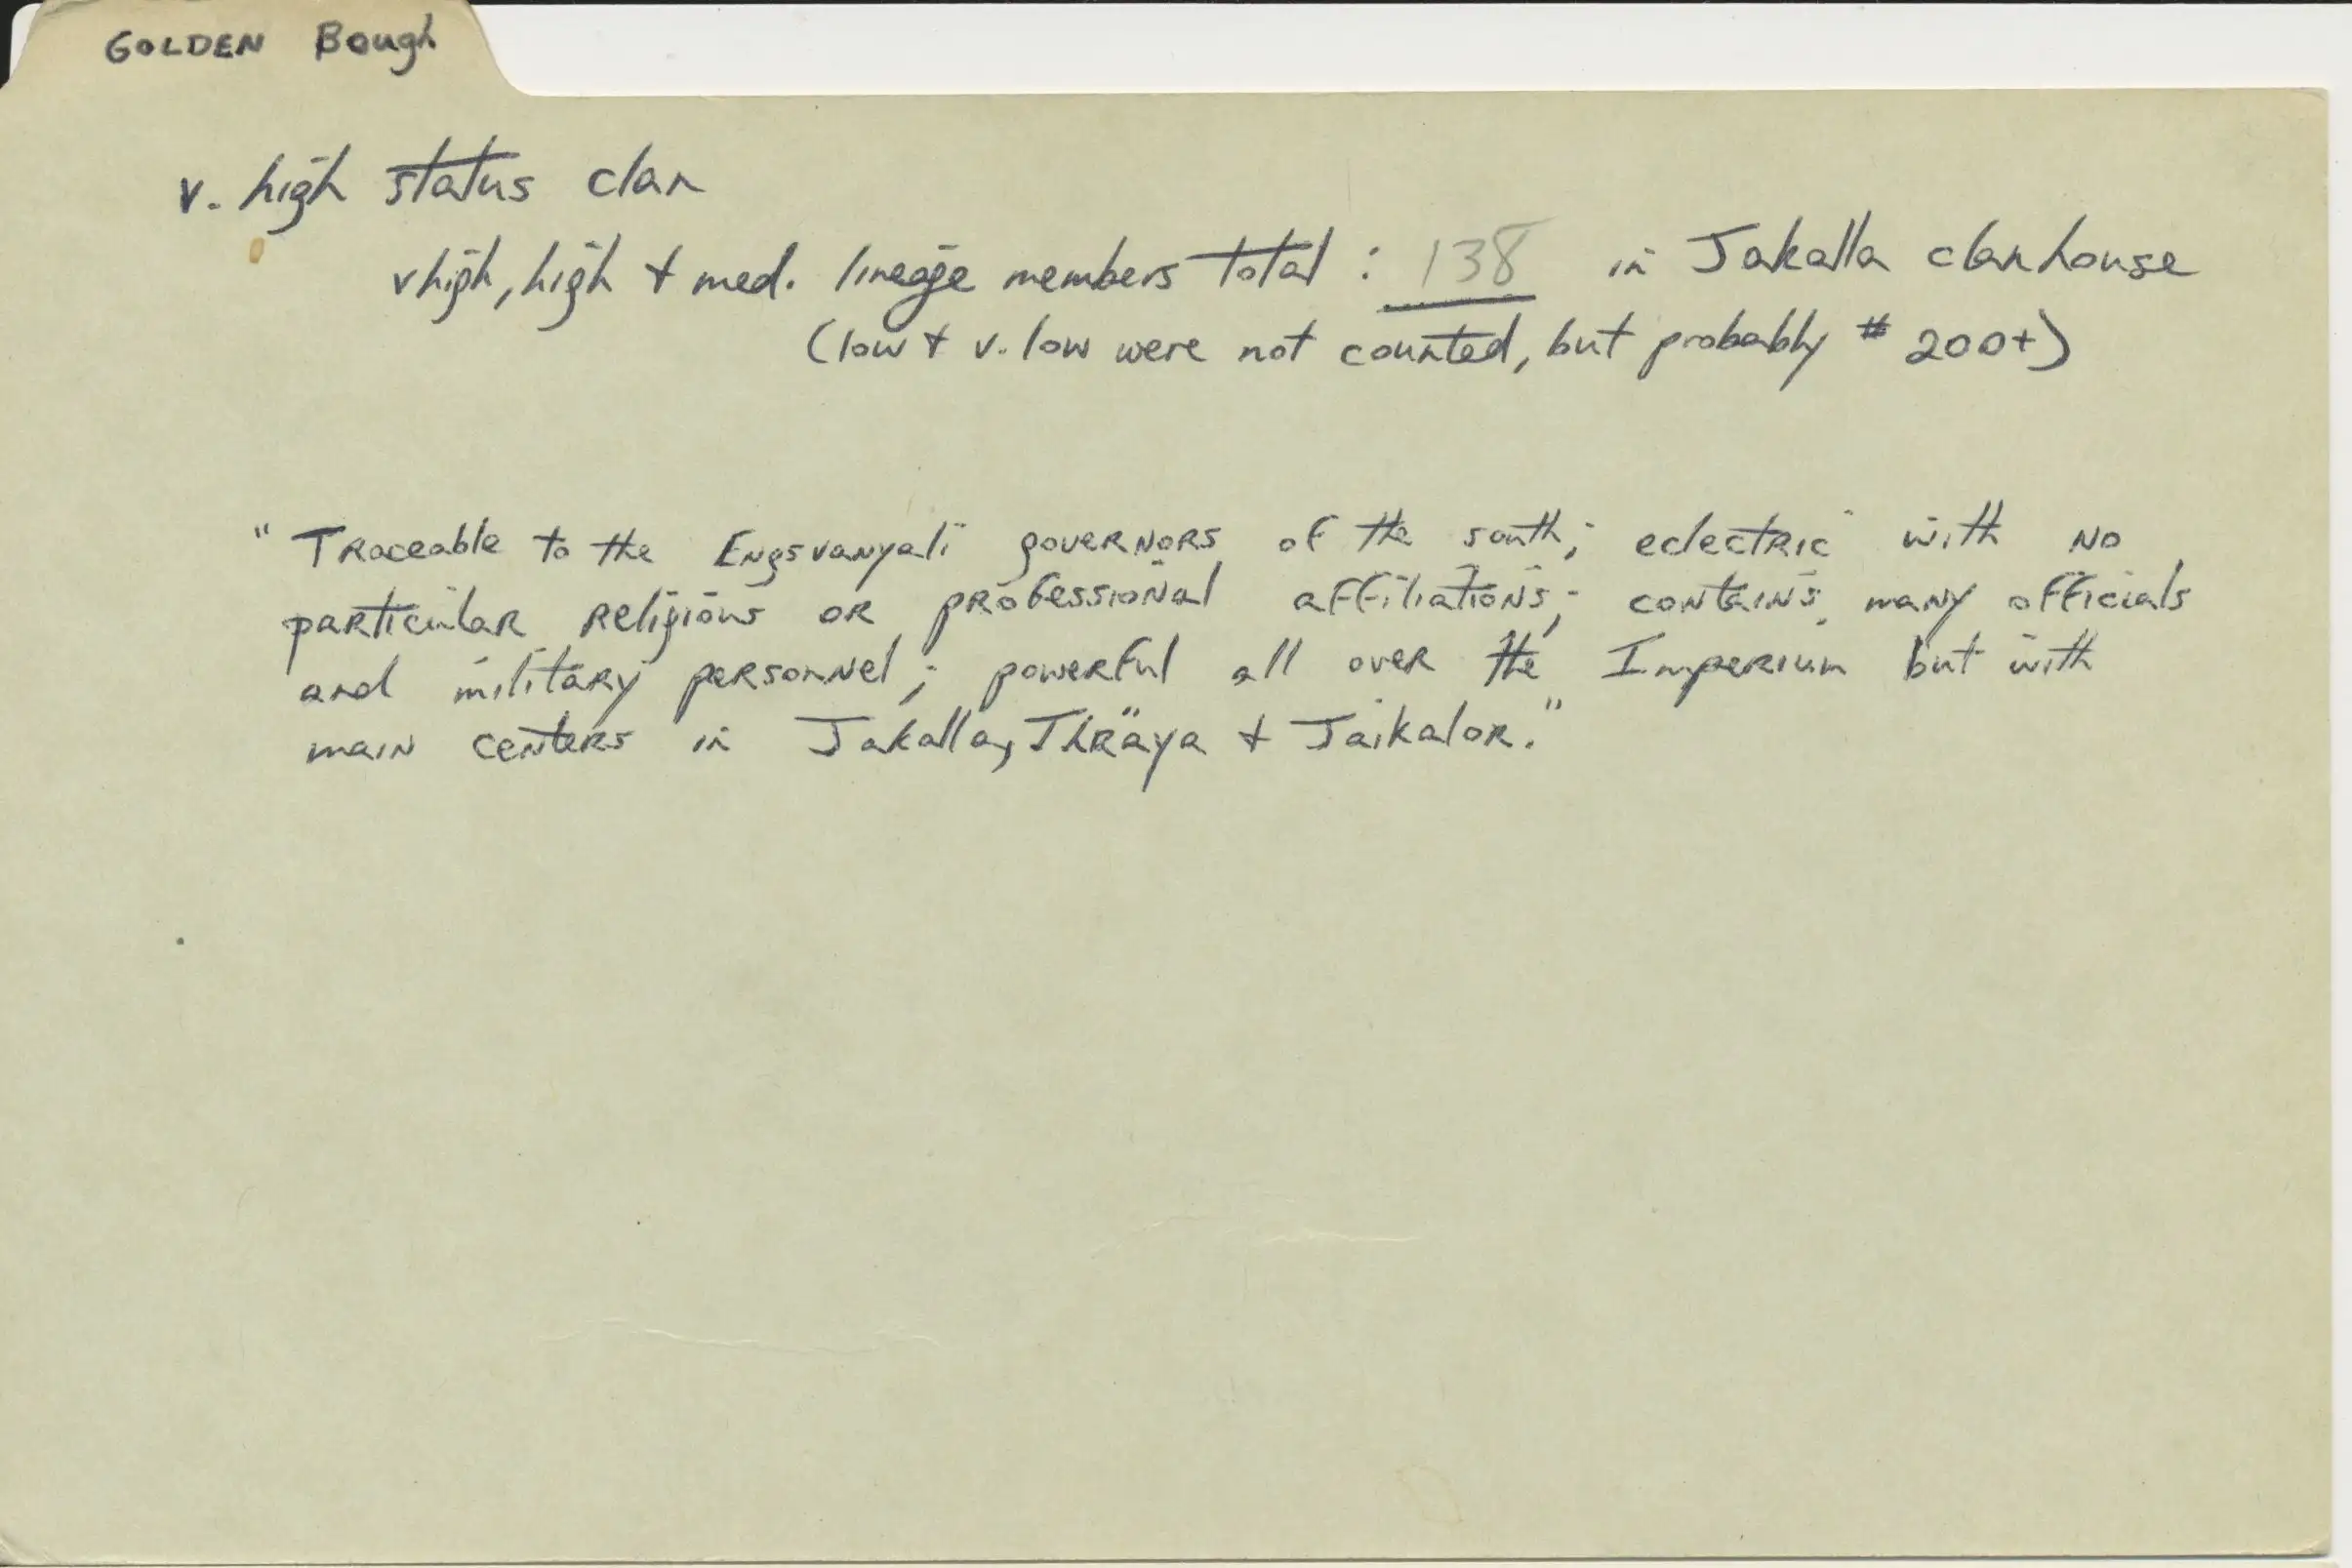 GOLDEN Bough
v. high status clan
vhigh, high + med. lineage members total : 138 in Jakalla clanhouse
(low + v. low were not counted, but probably # 200+)
" Traceable to the Engsvanyali governors of the south; eclectric with no
particular religious or professional affiliations; contains many officials
and military personnel; powerful all over the Imperium but with
main centers in Jakalla, Thräya + Jaikalor."